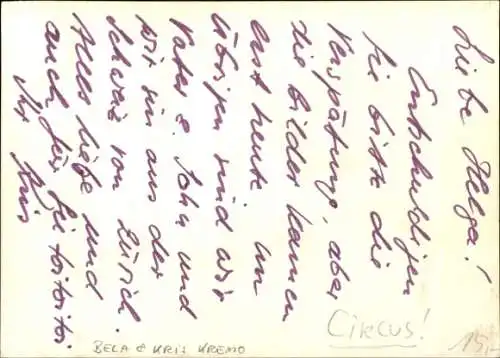 Liebe Helga!
Entschuldigen
Sie bitte die
Verspätung, aber
die Bilder kamen
erst heute. Im
übrigen sind wir
Vater & Sohn und
wir sin aus der
Schweiz von Zürich.
Alles liebe und
auch für Sie toitoitoi
Ihr Kris
Cirkus!
BELA & KRIS KREMO
15,-